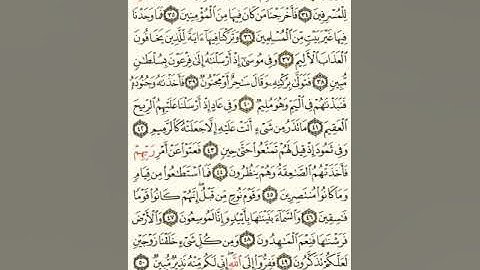 لِلْمُسْرِفِينَ ٣٤ فَأَخْرَجْنَا مَن كَانَ فِيهَا مِنَ الْمُؤْمِنِينَ ٣٥ فَمَا وَجَدْنَا
فِيهَا غَيْرَ بَيْتٍ مِّنَ الْمُسْلِمِينَ ٣٦ وَتَرَكْنَا فِيهَا ءَايَةً لِّلَّذِينَ يَخَافُونَ
الْعَذَابَ الْأَلِيمَ ٣٧ وَفِي مُوسَىٰ إِذْ أَرْسَلْنَاهُ إِلَىٰ فِرْعَوْنَ بِسُلْطَانٍ
مُّبِينٍ ٣٨ فَتَوَلَّىٰ بِرُكْنِهِ وَقَالَ سَاحِرٌ أَوْ مَجْنُونٌ ٣٩ فَأَخَذْنَاهُ وَجُنُودَهُ
فَنَبَذْنَاهُمْ فِي الْيَمِّ وَهُوَ مُلِيمٌ ٤٠ وَفِي عَادٍ إِذْ أَرْسَلْنَا عَلَيْهِمُ الرِّيحَ
الْعَقِيمَ ٤١ مَا تَذَرُ مِن شَيْءٍ أَتَتْ عَلَيْهِ إِلَّا جَعَلَتْهُ كَالرَّمِيمِ ٤٢
وَفِي ثَمُودَ إِذْ قِيلَ لَهُمْ تَمَتَّعُوا حَتَّىٰ حِينٍ ٤٣ فَعَتَوْا عَنْ أَمْرِ رَبِّهِمْ
فَأَخَذَتْهُمُ الصَّاعِقَةُ وَهُمْ يَنظُرُونَ ٤٤ فَمَا اسْتَطَاعُوا مِن قِيَامٍ
وَمَا كَانُوا مُنتَصِرِينَ ٤٥ وَقَوْمَ نُوحٍ مِّن قَبْلُ إِنَّهُمْ كَانُوا قَوْمًا
فَاسِقِينَ ٤٦ وَالسَّمَاءَ بَنَيْنَاهَا بِأَيْيْدٍ وَإِنَّا لَمُوسِعُونَ ٤٧ وَالْأَرْضَ
فَرَشْنَاهَا فَنِعْمَ الْمَاهِدُونَ ٤٨ وَمِن كُلِّ شَيْءٍ خَلَقْنَا زَوْجَيْنِ
لَعَلَّكُمْ تَذَكَّرُونَ ٤٩ فَفِرُّوا إِلَى اللَّهِ إِنِّي لَكُم مِّنْهُ نَذِيرٌ مُّبِينٌ ٥٠